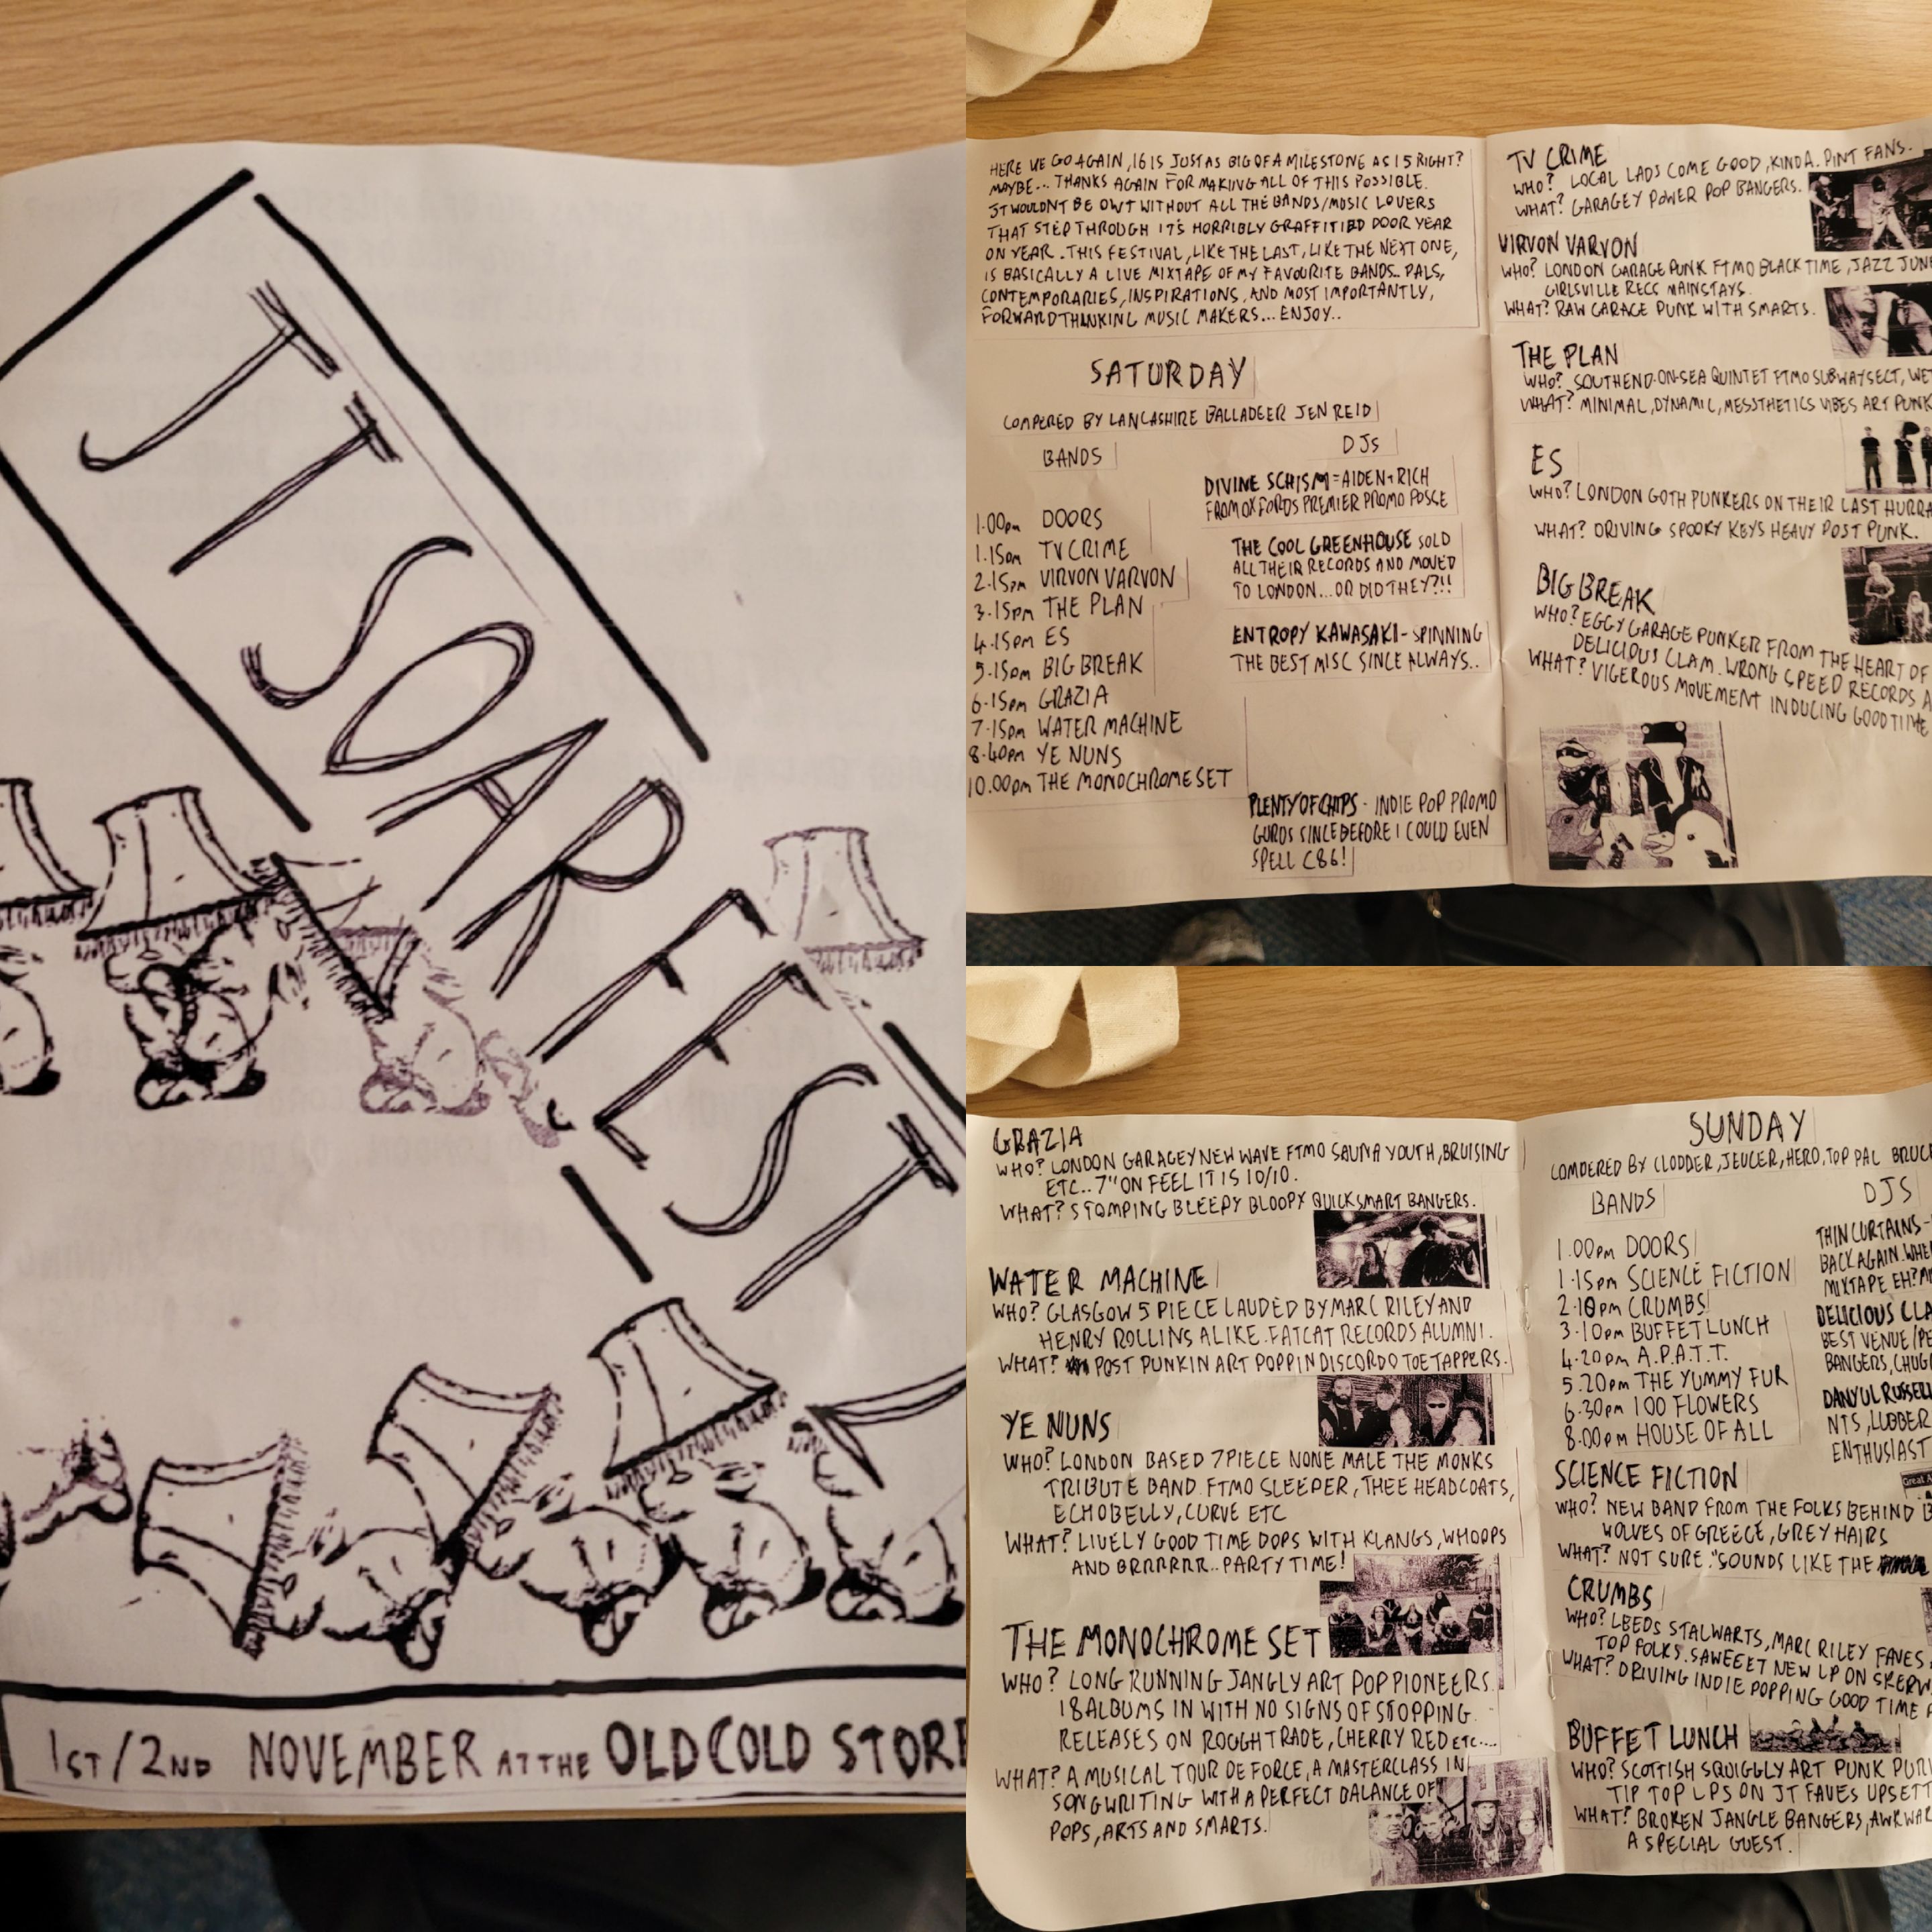 JT SOAR FEST
1ST/2ND NOVEMBER AT THE OLD COLD STORE
HERE WE GO AGAIN, 16 IS JUST AS BIG OF A MILESTONE AS 15 RIGHT?
MAYBE... THANKS AGAIN FOR MAKIING ALL OF THIS POSSIBLE.
IT WOULDNT BE OWT WITHOUT ALL THE BANDS/MUSIC LOVERS
THAT STEP THROUGH IT'S HORRIBLY GRAFFITIED DOOR YEAR
ON YEAR. THIS FESTIVAL, LIKE THE LAST, LIKE THE NEXT ONE,
IS BASICALLY A LIVE MIXTAPE OF MY FAVOURITE BANDS.. PALS,
CONTEMPORARIES, INSPIRATIONS, AND MOST IMPORTANTLY,
FORWARD THINKING MUSIC MAKERS... ENJOY..
SATURDAY
COMPERED BY LANCASHIRE BALLADEER JEN REID
BANDS
1.00pm DOORS
1.15pm TV CRIME
2.15pm VIRVON VARVON
3.15pm THE PLAN
4.15pm ES
5.15pm BIG BREAK
6.15pm GRAZIA
7.15pm WATER MACHINE
8.40pm YE NUNS
10.00pm THE MONOCHROME SET
DJS
DIVINE SCHISM = AIDEN + RICH
FROM OXFORDS PREMIER PROMO POSSE
THE COOL GREENHOUSE SOLD
ALL THEIR RECORDS AND MOVED
TO LONDON... OR DID THEY?!!
ENTROPY KAWASAKI - SPINNING
THE BEST MISC SINCE ALWAYS..
PLENTY OF CHIPS - INDIE POP PROMO
GUROS SINCE BEFORE I COULD EVEN
SPELL C86!
TV CRIME
WHO? LOCAL LADS COME GOOD, KINDA. PINT FANS.
WHAT? GARAGEY POWER POP BANGERS.
VIRVON VARVON
WHO? LONDON GARAGE PUNK FTMO BLACK TIME, JAZZ JUNE
GIRLSVILLE RECS MAINSTAYS.
WHAT? RAW GARAGE PUNK WITH SMARTS.
THE PLAN
WHO? SOUTHEND-ON-SEA QUINTET FTMO SUBWAY SECT, WET
WHAT? MINIMAL, DYNAMIC, MESSTHETICS VIBES ART PUNK
ES
WHO? LONDON GOTH PUNKERS ON THEIR LAST HURRA
WHAT? DRIVING SPOOKY KEYS HEAVY POST PUNK.
BIG BREAK
WHO? EGGY GARAGE PUNKER FROM THE HEART OF
DELICIOUS CLAM. WRONG SPEED RECORDS A
WHAT? VIGEROUS MOVEMENT INDUCING GOOD TIME
GRAZIA
WHO? LONDON GARAGEY NEW WAVE FTMO SAUNA YOUTH, BRUISING
ETC.. 7" ON FEEL IT IS 10/10.
WHAT? STOMPING BLEEPY BLOOPY QUICK SMART BANGERS.
WATER MACHINE
WHO? GLASGOW 5 PIECE LAUDED BY MARC RILEY AND
HENRY ROLLINS ALIKE. FATCAT RECORDS ALUMNI.
WHAT? POST PUNKIN ART POPPIN DISCORDO TOE TAPPERS.
YE NUNS
WHO? LONDON BASED 7 PIECE NONE MALE THE MONKS
TRIBUTE BAND. FTMO SLEEPER, THEE HEADCOATS,
ECHOBELLY, CURVE ETC
WHAT? LIVELY GOOD TIME BOPS WITH KLANGS, WHOOPS
AND BRRRRRR.. PARTY TIME!
THE MONOCHROME SET
WHO? LONG RUNNING JANGLY ART POP PIONEERS.
18 ALBUMS IN WITH NO SIGNS OF STOPPING.
RELEASES ON ROUGH TRADE, CHERRY RED etc....
WHAT? A MUSICAL TOUR DE FORCE, A MASTERCLASS IN
SONGWRITING WITH A PERFECT BALANCE OF
POPS, ARTS AND SMARTS.
SUNDAY
COMPERED BY CLODDER, JEUCER, HERO, TOP PAL BRUCE
BANDS
1.00pm DOORS
1.15pm SCIENCE FICTION
2.10pm CRUMBS
3.10pm BUFFET LUNCH
4.20pm A.P.A.T.T.
5.20pm THE YUMMY FUR
6.30pm 100 FLOWERS
8.00pm HOUSE OF ALL
DJS
THIN CURTAINS -
BACK AGAIN. WHE
MIXTAPE EH?
DELICIOUS CLA
BEST VENUE/PE
BANGERS, CHUG
DANYUL RUSSELL
NTS, LUBBER
ENTHUSIAST
SCIENCE FICTION
WHO? NEW BAND FROM THE FOLKS BEHIND B
WOLVES OF GREECE, GREY HAIRS
WHAT? NOT SURE. "SOUNDS LIKE THE
Great A
CRUMBS
WHO? LEEDS STALWARTS, MARC RILEY FAVES,
TOP FOLKS. SAWEEET NEW LP ON SKEPW
WHAT? DRIVING INDIE POPPING GOOD TIME
BUFFET LUNCH
WHO? SCOTTISH SQUIGGLY ART PUNK PURV
TIP TOP LPS ON JT FAVES UPSETT
WHAT? BROKEN JANGLE BANGERS, AWKWAR
A SPECIAL GUEST.